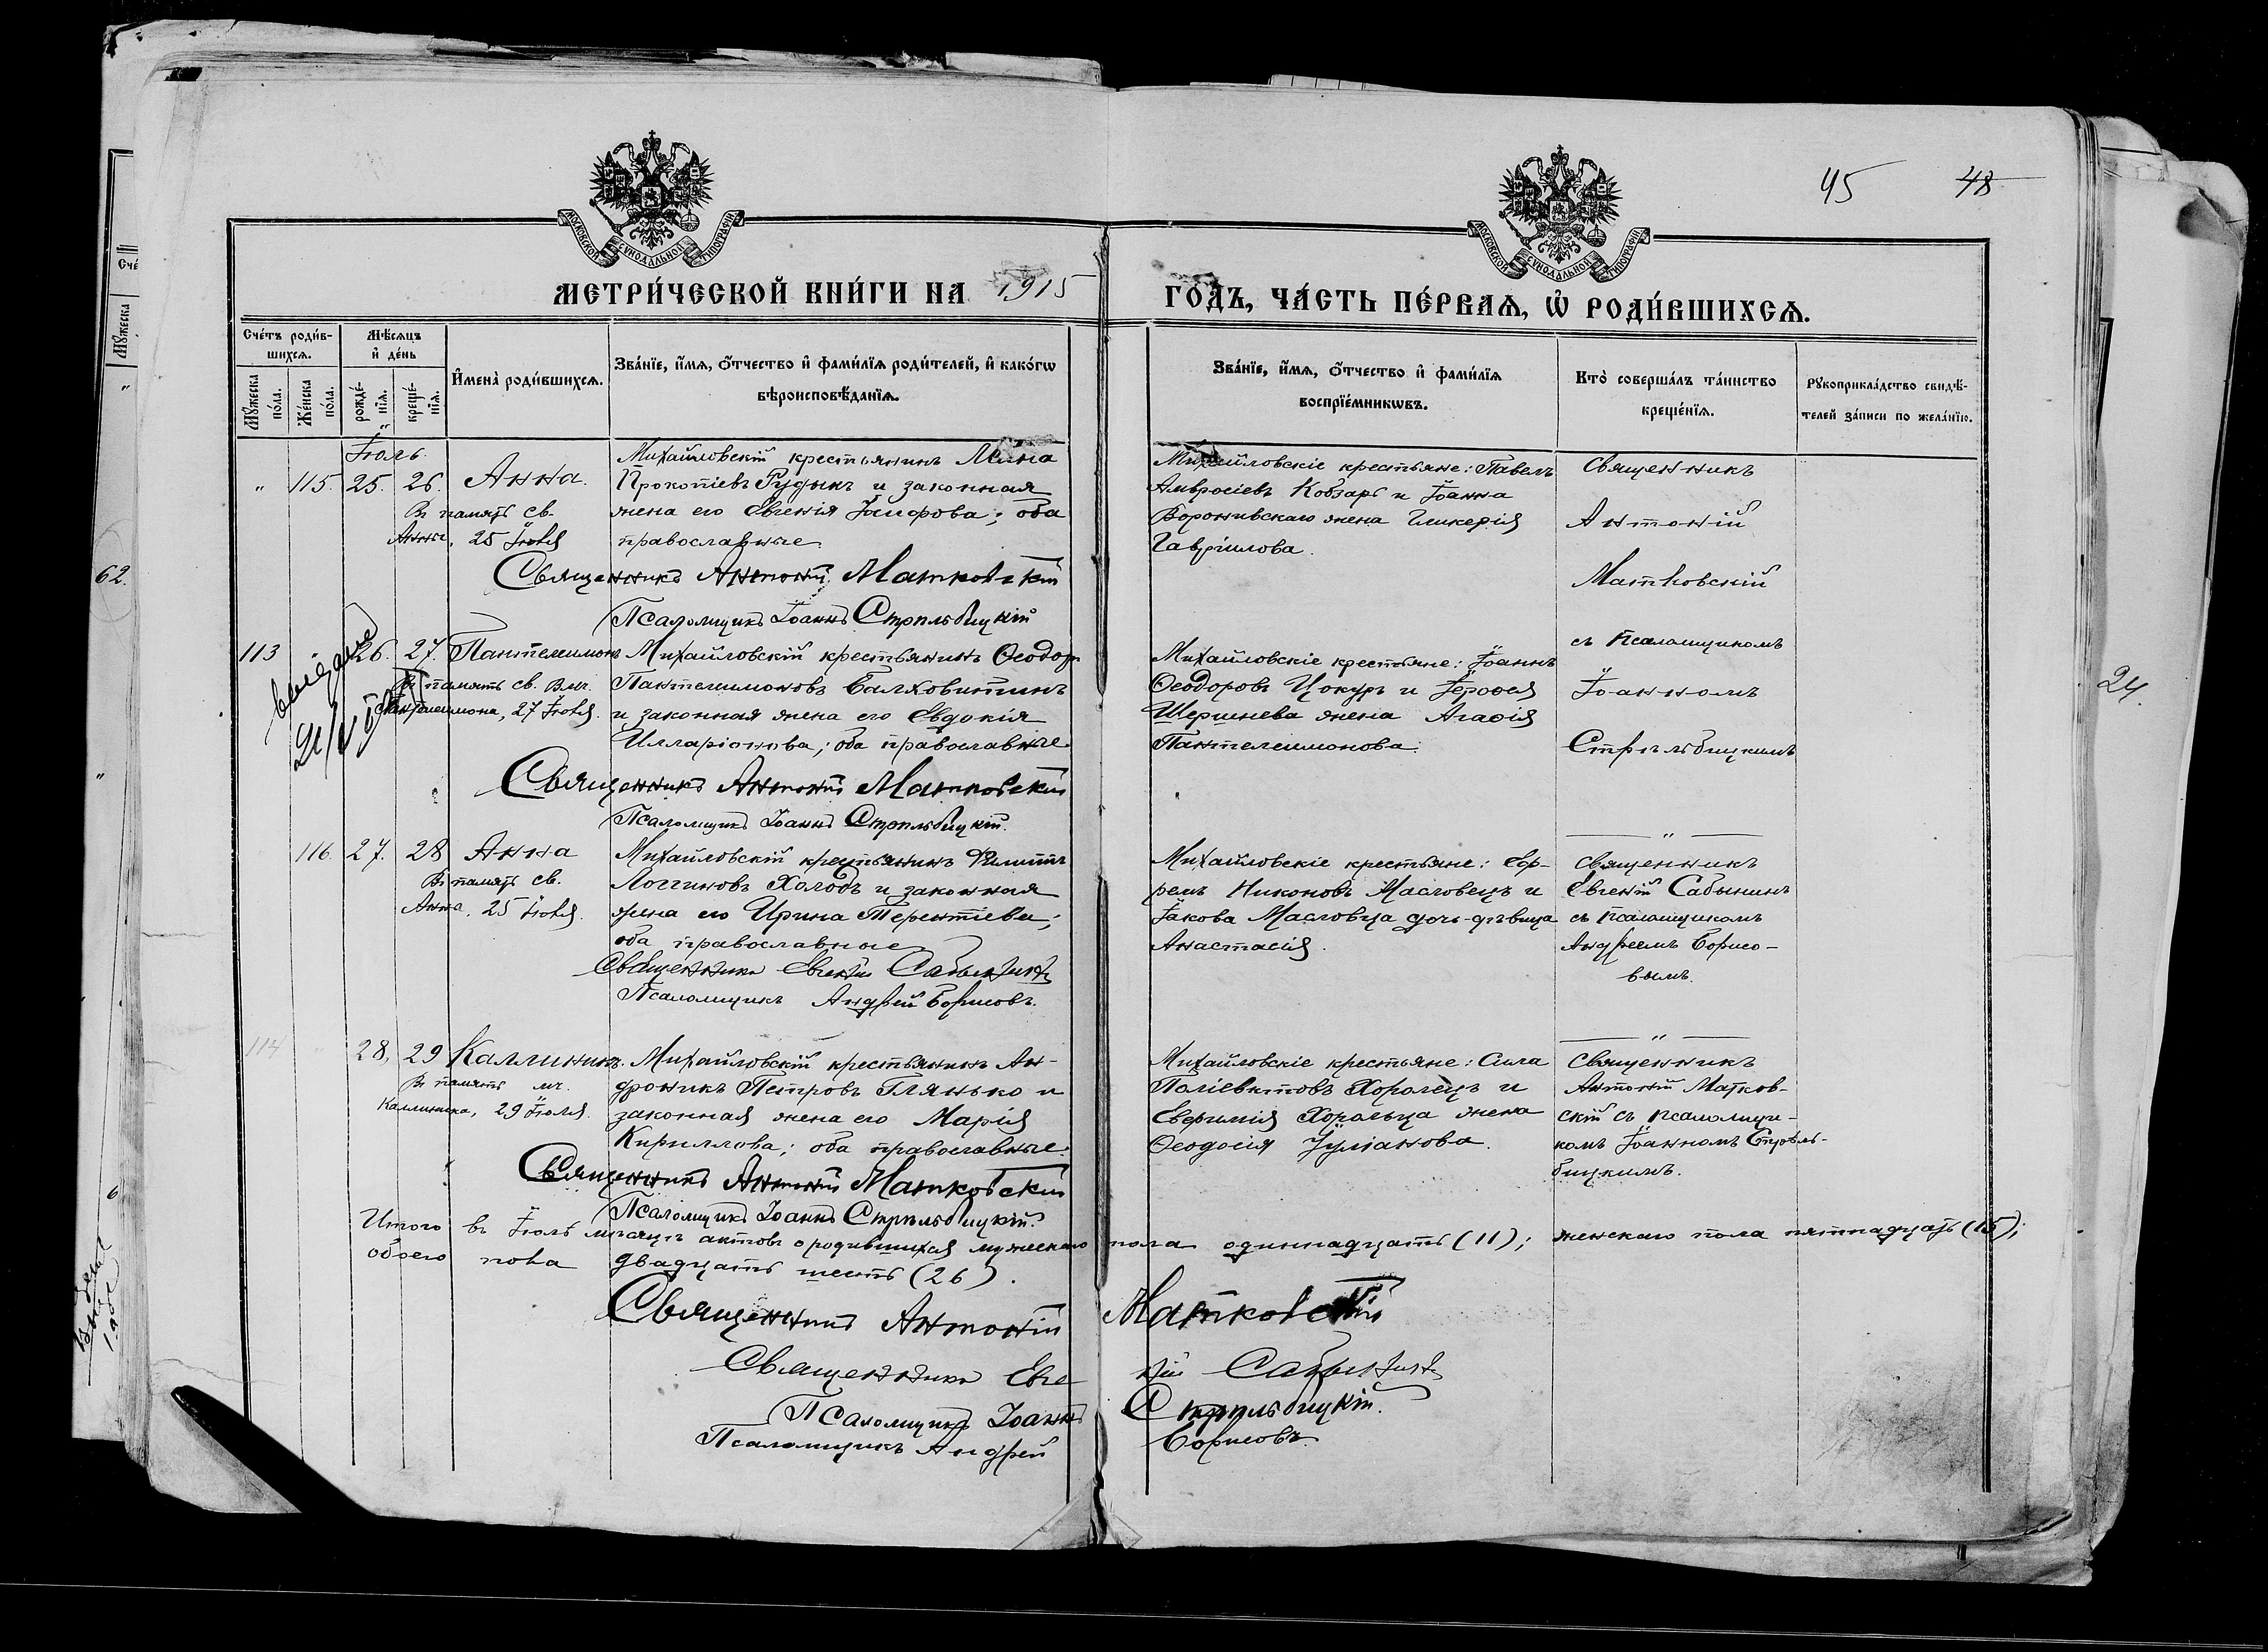 45 48
МОСКОВСКОЙ СѴНОДАЛЬНОЙ ТИПОГРАФІИ
МОСКОВСКОЙ СѴНОДАЛЬНОЙ ТИПОГРАФІИ
МЕТРИ́ЧЕСКОЙ КНИ́ГИ НА 1915
ГОДЪ, ЧА́СТЬ ПЕ́РВАѦ, Ѡ҆ РОДИ́ВШИХСѦ.
Сче́тъ роди́в-
шихсѧ.
Мѣ́сѧцъ
и҆ де́нь
Мꙋ́жеска
по́ла.
Же́нска
по́ла.
рожде́-
нїѧ.
креще́-
нїѧ.
И҆мена̀ роди́вшихсѧ.
Зва́нїе, и҆́мѧ, ѻ҆́тчество и҆ фами́лїѧ роди́телей, и҆ како́гѡ
вѣроисповѣ́данїѧ.
Зва́нїе, и҆́мѧ, ѻ҆́тчество и҆ фами́лїѧ
воспрїе́мникѡвъ.
Кто̀ соверша́лъ та́инство
креще́нїѧ.
Рꙋкоприкла́дство свидѣ́-
телей за́писи по жела́нїю.
Іюль.
" 115. 25. 26. Анна.
Въ память св.
Анны, 25 Іюля
Михайловскій крестьянинъ Мина
Прокопіевъ Рудыкъ и законная
жена его Евгенія Іаифова; оба
православные.
Священникъ Антоній Матковскій
Псаломщикъ Іоаннъ Стрѣльбицкій
Михайловскіе крестьяне: Павелъ
Амвросіевъ Кобзарь и Іоанна
жена Гликерія
Гавріилова.
Священникъ
Антоній
Матковскій
съ псаломщикомъ
Іоанномъ
Стрѣльбицкимъ
113 26. 27. Пантелеимонъ
Въ память св. Влмч.
Пантелеимона, 27 Іюля.
Михайловскій крестьянинъ Ѳеодоръ
Пантелеимоновъ Балховитинъ
и законная жена его Евдокія
Илларіонова; оба православные.
Священникъ Антоній Матковскій
Псаломщикъ Іоаннъ Стрѣльбицкій.
Михайловскіе крестьяне: Іоаннъ
Ѳеодоровъ Цокуръ и Іероѳея
Шершнева жена Агаѳія
Пантелеимонова.
116. 27. 28 Анна
Въ память св.
Анна, 25 Іюля.
Михайловскій крестьянинъ Филиппъ
Логгиновъ Холодъ и законная
жена его Ирина Терентіева;
оба православные
Священникъ Евгеній Сабынинъ
Псаломщикъ Андрей Борисовъ.
Михайловскіе крестьяне: Еф-
ремъ Никоновъ Масловецъ и
Іакова Масловца дочь-дѣвица
Анастасія.
Священникъ
Евгеній Сабынинъ
съ псаломщикомъ
Андреемъ Борисо-
вымъ.
114 28, 29 Каллиникъ.
Въ память мч.
Каллиника, 29 Іюля.
Михайловскій крестьянинъ Ан-
дроникъ Петровъ Глянько и
законная жена его Марія
Кириллова; оба православные.
Священникъ Антоній Матковскій
Псаломщикъ Іоаннъ Стрѣльбицкій.
Михайловскіе крестьяне: Сила
Поліевктовъ Хоролецъ и
Евфимія Хорольца жена
Ѳеодосія Іуліанова.
Священникъ
Антоній Матков-
скій съ псаломщи-
комъ Іоанномъ Стрѣль-
бицкимъ.
Итого въ Іюлѣ мѣсяцѣ актовъ о родившихся мужескаго пола одиннадцать (11); женскаго пола пятнадцать (15);
обоего пола двадцать шесть (26).
Священникъ Антоній Матковскій
Священникъ Евгеній Сабынинъ
Псаломщикъ Іоаннъ Стрѣльбицкій.
Псаломщикъ Андрей Борисовъ.
62.
24.